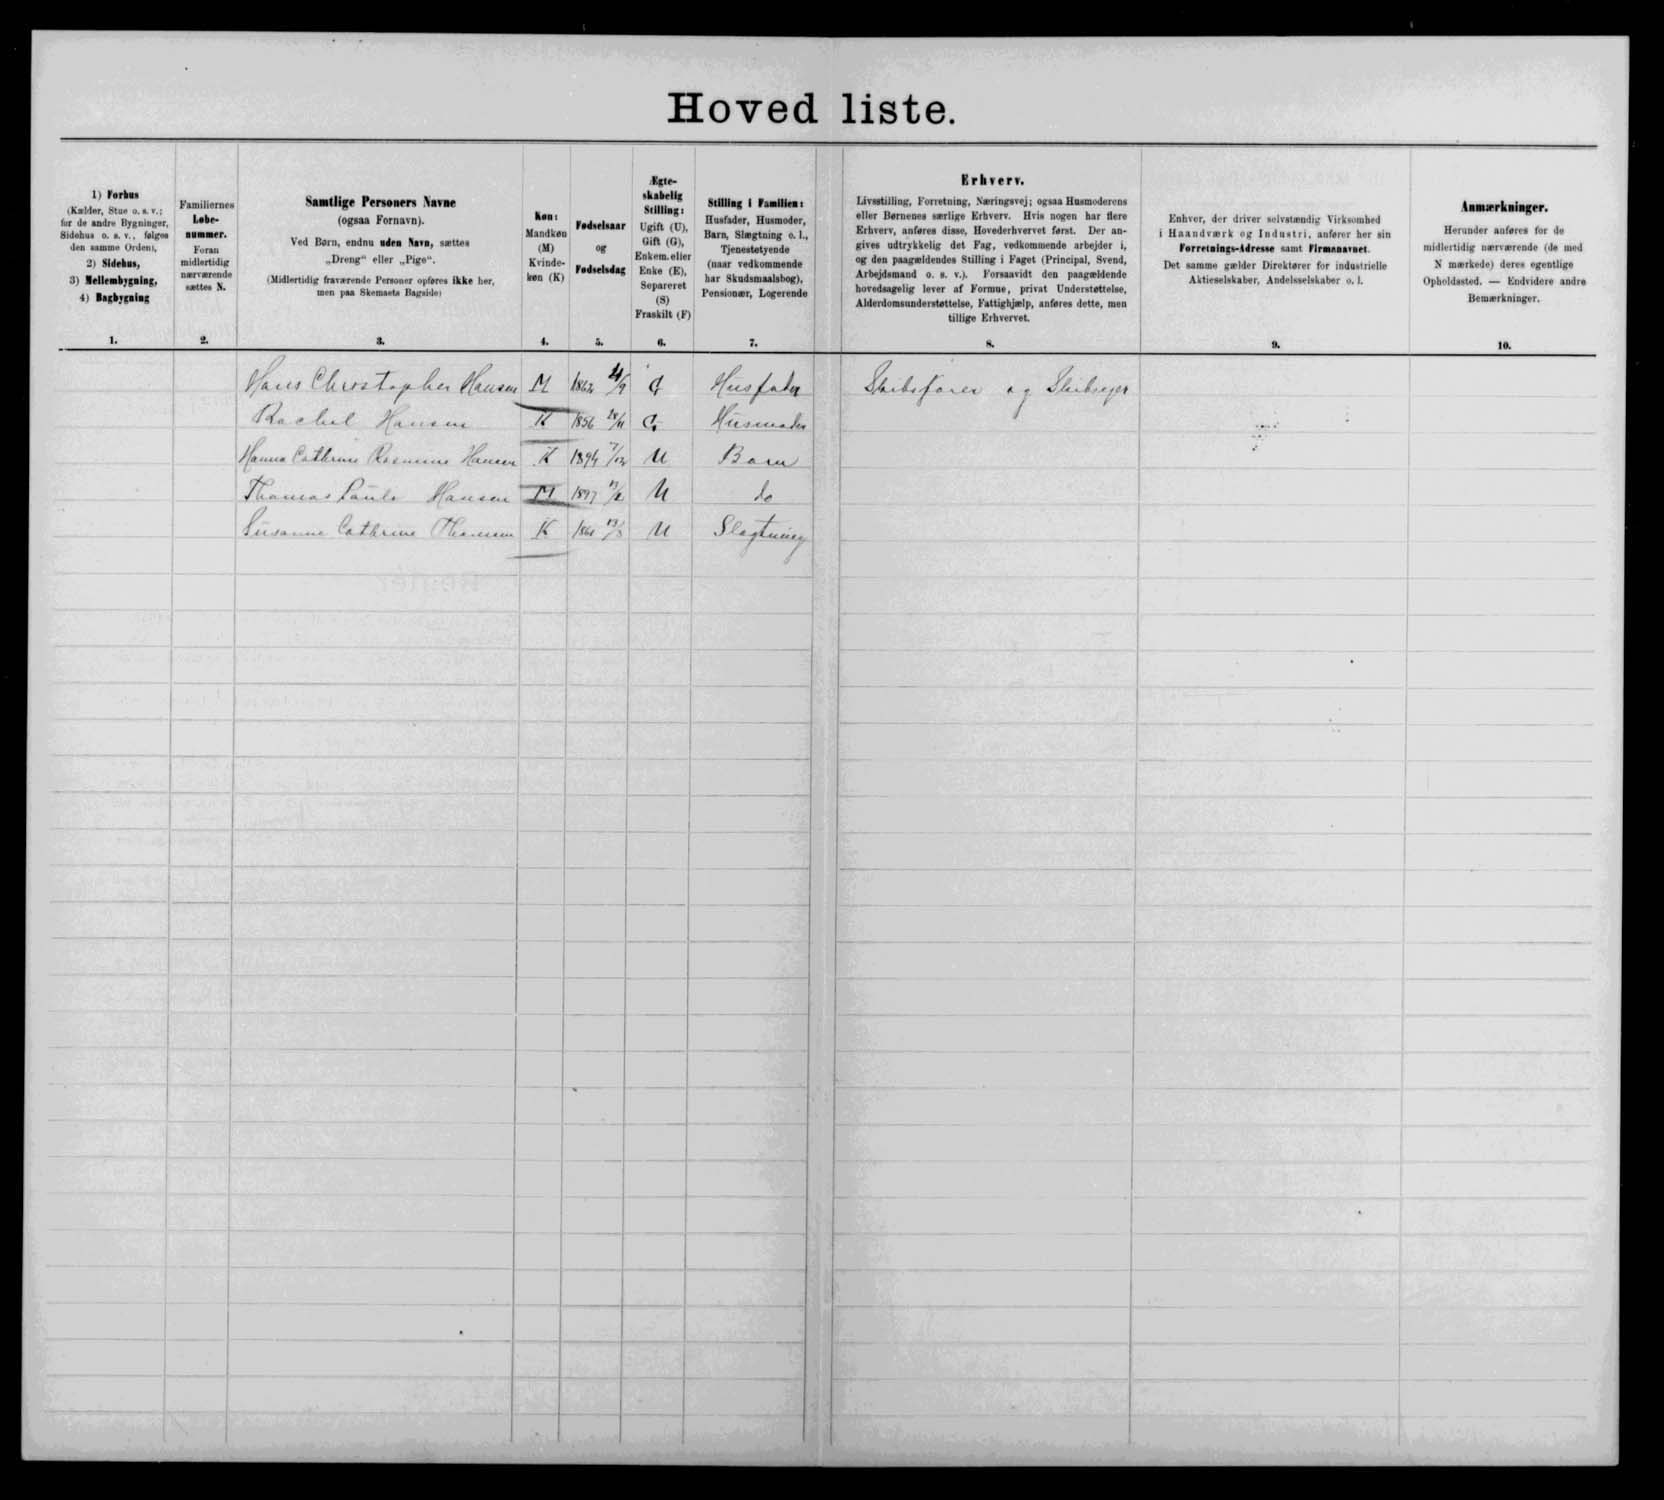 Hovedliste.
1) Forhus
(Kælder, Stue o. s. v.;
for de andre Bygninger,
Sidehus o. s. v., følges
den samme Orden),
2) Sidehus,
3) Mellembygning,
4) Bagbygning
1.
Familiernes
Løbe-
nummer.
Foran
midlertidig
nærværende
sættes N.
2.
Samtlige Personers Navne
(ogsaa Fornavn).
Ved Børn, endnu uden Navn, sættes
„Dreng“ eller „Pige“.
(Midlertidig fraværende Personer opføres ikke her,
men paa Skemaets Bagside)
3.
Køn:
Mandkøn
(M)
Kvinde-
køn (K)
4.
Fødselsaar
og
Fødselsdag
5.
Ægte-
skabelig
Stilling:
Ugift (U),
Gift (G),
Enkem. eller
Enke (E),
Separeret
(S)
Fraskilt (F)
6.
Stilling i Familien:
Husfader, Husmoder,
Barn, Slægtning o. l.,
Tjenestetyende
(naar vedkommende
har Skudsmaalsbog),
Pensionær, Logerende
7.
Erhverv.
Livsstilling, Forretning, Næringsvej; ogsaa Husmoderens
eller Børnenes særlige Erhverv. Hvis nogen har flere
Erhverv, anføres disse, Hovederhvervet først. Der an-
gives udtrykkelig det Fag, vedkommende arbejder i,
og den paagældendes Stilling i Faget (Principal, Svend,
Arbejdsmand o. s. v.). Forsaavidt den paagældende
hovedsagelig lever af Formue, privat Understøttelse,
Alderdomsunderstøttelse, Fattighjælp, anføres dette, men
tillige Erhvervet.
8.
Enhver, der driver selvstændig Virksomhed
i Haandværk og Industri, anfører her sin
Forretnings-Adresse samt Firmanavnet.
Det samme gælder Direktører for industrielle
Aktieselskaber, Andelsselskaber o. l.
9.
Anmærkninger.
Herunder anføres for de
midlertidig nærværende (de med
N mærkede) deres egentlige
Opholdssted. — Endvidere andre
Bemærkninger.
10.
Hans Christopher Hansen M 1862 G Husfader Skibsfører og Skibsejer
Rachel Hansen K 1856 G Husmoder
Hanna Cathrine Hansen K 1894 7/12 U Barn
Thomas Paulo Hansen M 1897 U do
Susanne Cathrine Thomsen K U Slægtning